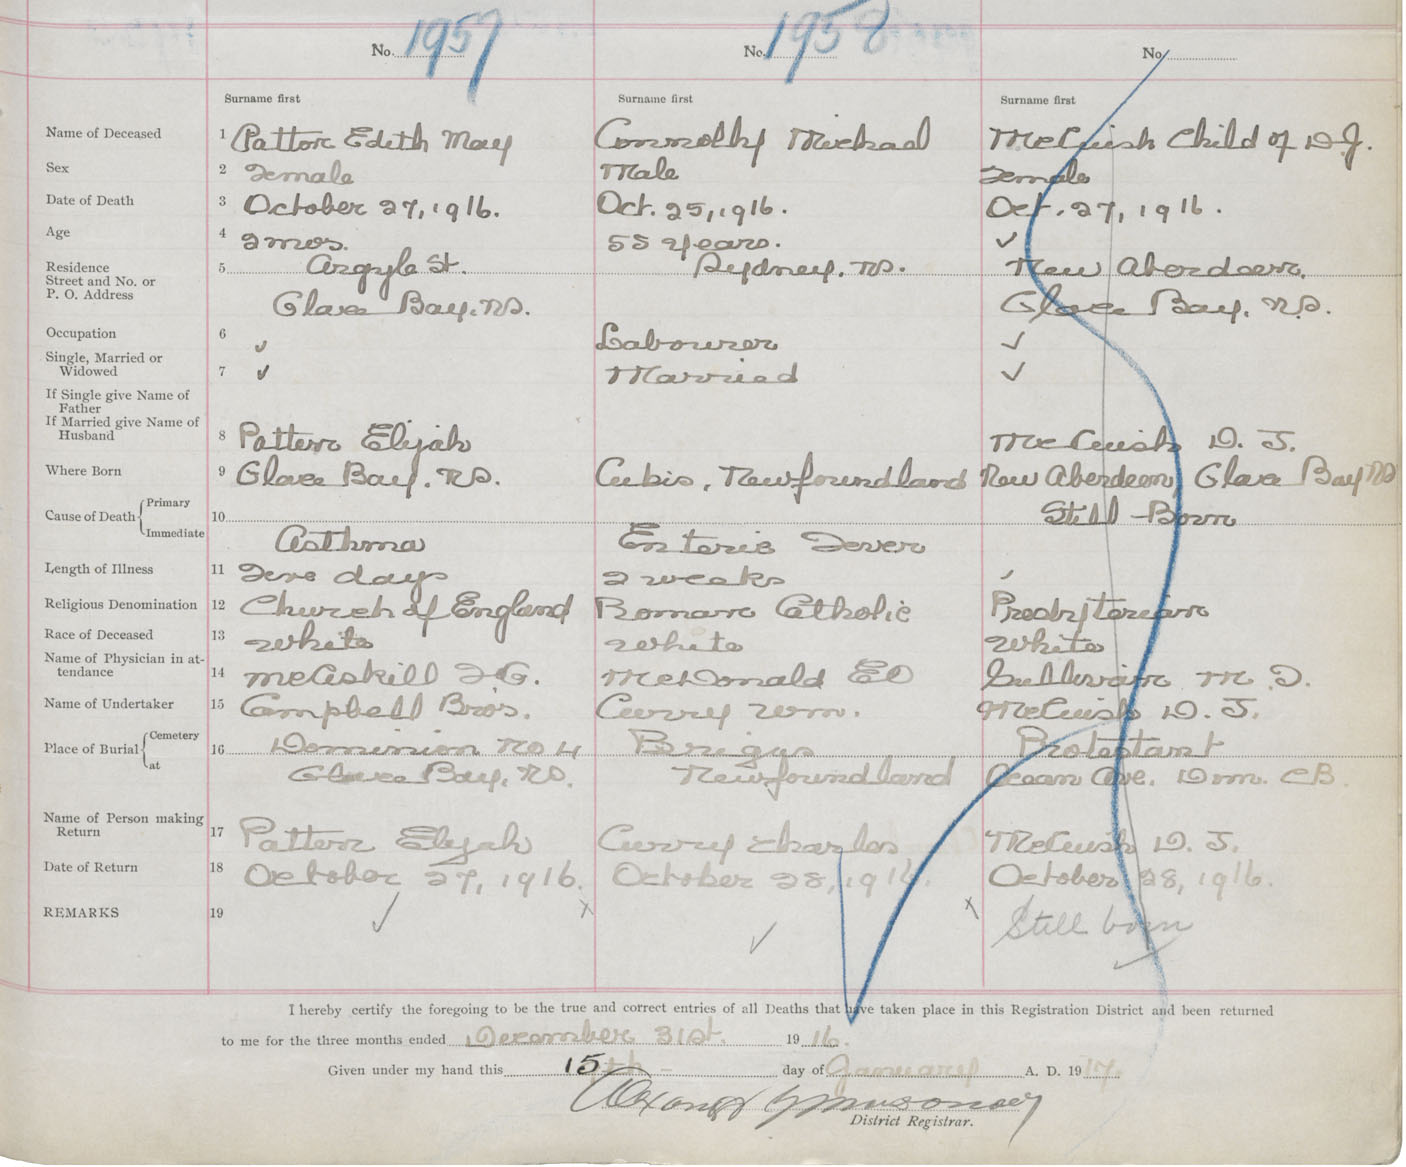 No. 1957 No. 1958 No.
Surname first Surname first Surname first
Name of Deceased 1 Patten Edith May Connolly Michael McCuish Child of D.J.
Sex 2 Female Male Female
Date of Death 3 October 27, 1916. Oct. 25, 1916. Oct. 27, 1916.
Age 4 2 mos. 55 years. ✓
Residence 5 Argyle St. Sydney, N.S. New Aberdeen,
Street and No. or
P. O. Address Glace Bay, N.S. Glace Bay, N.S.
Occupation 6 ✓ Labourer ✓
Single, Married or
Widowed 7 ✓ Married ✓
If Single give Name of
Father
If Married give Name of
Husband 8 Patten Elijah McCuish D. J.
Where Born 9 Glace Bay, N.S. Cubis, Newfoundland New Aberdeen, Glace Bay NS
Cause of Death { Primary 10 Still-Born
Immediate Asthma Enteric Fever
Length of Illness 11 Five days 2 weeks ✓
Religious Denomination 12 Church of England Roman Catholic Presbyterian
Race of Deceased 13 White White White
Name of Physician in at-
tendance 14 McAskill F.G. McDonald ED Sullivan M. D.
Name of Undertaker 15 Campbell Bros. Curry Wm. McCuish D. J.
Place of Burial { Cemetery 16 Dominion No 4 Brigus Protestant
at Glace Bay, N.S. Newfoundland Ocean Ave. Dom. CB.
Name of Person making
Return 17 Patten Elijah Curry Charles McCuish D. J.
Date of Return 18 October 27, 1916. October 28, 1916. October 28, 1916.
REMARKS 19 ✓ x ✓ x Still born ✓
I hereby certify the foregoing to be the true and correct entries of all Deaths that have taken place in this Registration District and been returned
to me for the three months ended December 31st. 19 16.
Given under my hand this 15th day of January A. D. 19 17.
District Registrar.